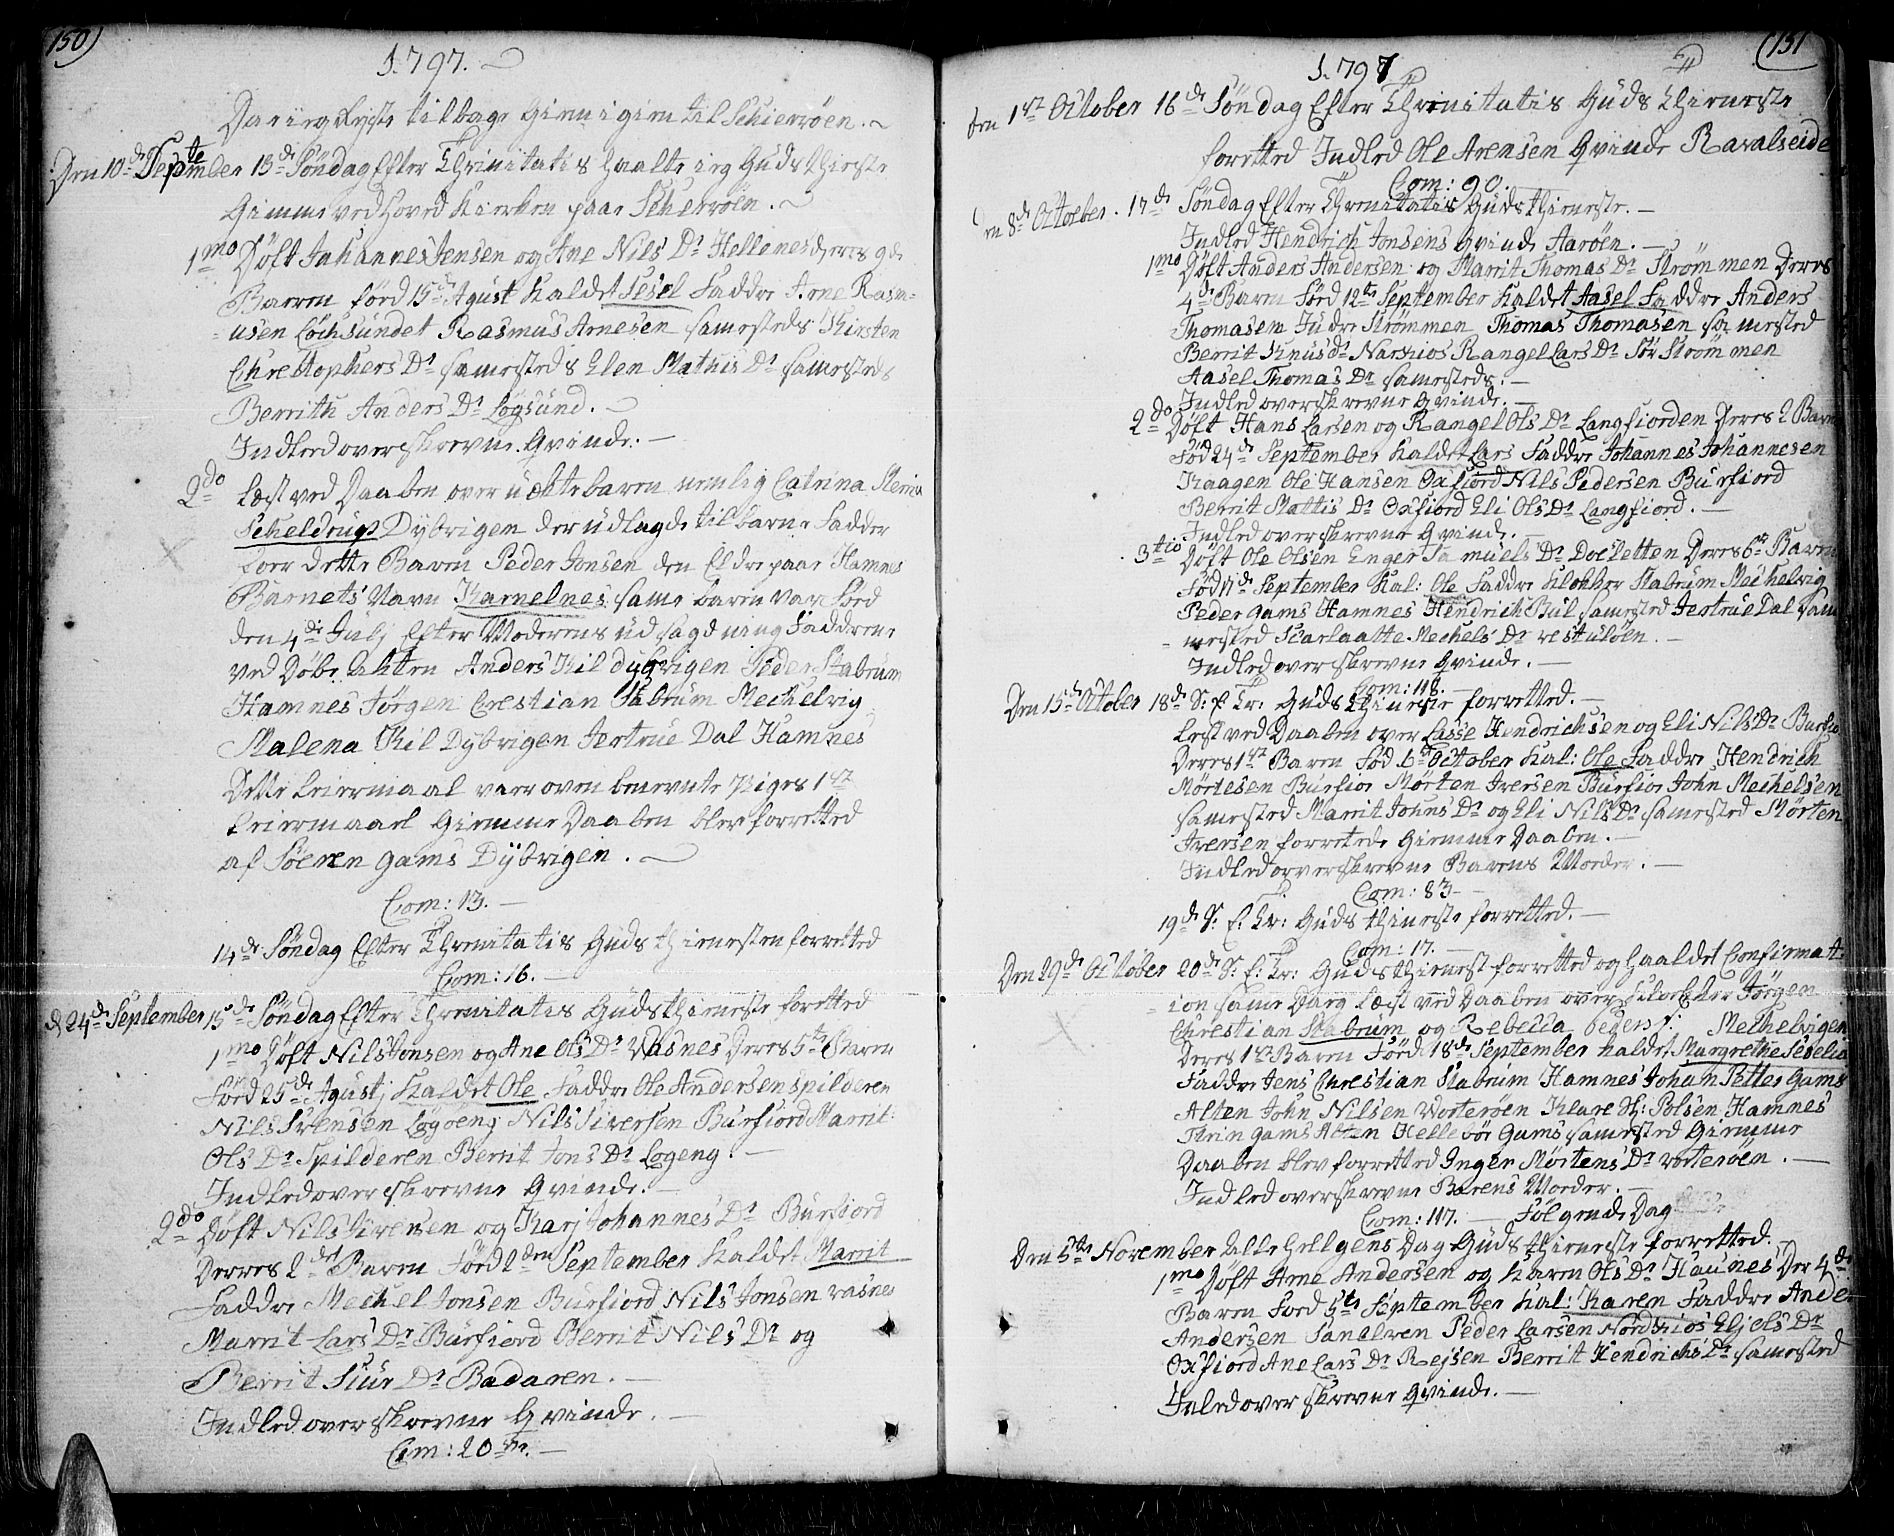 150)
1797.
Da ieg Rejste tilbage Giemigien til Schierröen.
Den 10de September 13de Söndag Efter Thrinitatis haalte ieg Guds thieste
Gimme ved hoved Kierken paa Schierröen.
1mo Döft Johannes Jensen og Ane Nils Dr Hellenes deres 9de
Baren förd 15de Agust Kaldet Sesel Faddre Arne Rasm-
usen Lochsundet Rasmus Arnesen samesteds Kirsten
Chrestophers Dr samesteds Elen Mathis Dr samesteds
Berrith Anders Dr Logsund.
Indled overskrevne Qvinde.
2do Læst ved Daaben over uekte baren nemlig Catrina
Scheldrups Dybvigen der udlagde til barne Fadder
for dette Baren Peder Jonsen den Eldre paa Hamnes
Barnets Navn Karnelnes same baren var Förd
den 4de Julj Efter Moderens udsagd ning Faddrene
ved Döbe Akten Anders Kil Dybvigen Peder Stabrum
Hamnes Jörgen Crestian Stabrum Mechelvig
Malena Kil Dybvigen Jertrue Dal Hamnes
Dette Leiermaal vaer oven benevnte Piges 1st
Leiermaael Giemme Daaben blev forretted
af Söeren Gams Dybvigen.
Com: 13.
14de Söndag Efter Threnitatis Guds thienesten forretted
Com: 16.
d. 24de September 15de Söndag Efter Threnitatis Guds thieneste foretted
1mo Döft Nils Jonsen og Ane Ols Dr Vasnes Deres 5te Baren
Förd 25de Agustj Kaldet Ole Faddre Ole Andersen Spilderen
Nils Ivensen Logöeng Nils Siversen Burfiord Marrit
Ols Dr Spilderen Berrit Jons Dr Logeng.
Indled overskrevne Qvinde.
2do Döft Nils Iversen og Karj Johannes Dr Burfiord
Derres 2det Baren Förd 2den September Kaldet Marrit
Faddre Mechel Jonsen Burfiord Nils Jonsen vasnes
Marrit Lars Dr Burfiord Berrit Nils Dr og
Berrit Siur Dr Badaren.
Indled overskrevne Qvinde.
Com: 20
(151
1797
den 1st October 16de Söndag Efter Threnitatis Guds Thieneste
foretted Indled Ole Arensen Qvinde Ravalseide
Com: 90.
den 8de October. 17de Söndag Efter Threnitatis Guds thieneste.
Indled Hendrich Jonsens Qvinde Aaröen.
1mo Döft Anders Andersen og Marrit Thomas Dr Strömmen Deres
4de Baren Förd 12te September Kaldet Aasel Faddre Anders
Thomasen Indre Strömmen Thomas Thomasen samested
Berrit Knus Dr Rangel Lars Dr Sör Strömmen
Aasel Thomas Dr samesteds.
Indled overskrevne Qvinde.
2do Döft Hans Larsen og Rangel Ols Dr Langfiorden Deres 2 Baren
Föd 24de September Kaldet Lars Faddre Johannes Johannesen
Kaagen Ole Hansen Oxfiord Nils Pedersen Burfiord
Berrit Mattis Dr Oxfiord Eli Ols Dr Langfiord.
Indled overskrevne Qvinde.
3tio Döft Ole Olsen Enger Samuels Dr Docletten Deres 6te Baren
Föd 17de September Kal: Ole Faddre Klokker Stabrum Mechelvig
Peder Gams Hamnes Hendrich Bul samested Jertrue Dal sam-
mested Scarlaatte Mechels Dr
Indled overskrevne Qvinde.
Com: 118.
Den 15de October 18de S: E: Tr: Guds thieneste forretted.
Lest ved Daaben over Lasse Hendrichsen og Eli Nils Dr Burfio
Deres 1st Baren Föd 6te October Kal: Ole Faddre Hendrich
Mörtesen Burfior Mörten Iversen Burfior John Mechelsen
samested Marrit Johns Dr og Eli Nils Dr samested Mörten
Iversen forretede Giemme Daaben.
Indled overskrevne Barens Moeder.
Com: 83
19de S: E: Tr: Guds thieneste forretted.
Com: 17.
Den 29de October 20de S: E: Tr: Guds thienest forretted og haaldet Confirmat-
ion same Dag Læst ved Daaben over Klokker Jörgen
Chrestian Stabrum og Rebecca Peders: Mechelvigen
Deres 1st Baren Förd 18de September kaldet Margrethe Seselia
Faddre Jens Chrestian Stabrum Hamnes Johan Petter Gams
Alten John Nilsen Vorteröen Klare St: Polsen Hamnes
Trin Gams Alten Hellebör Gams samested Giemme
Daaben blev forretted Inger Mörtens Dr vorteröen.
Indled overskrevne Barens Moeder.
Com: 117. Fölgende Dag
Den 5te November Alle hellgens Dag Guds thieneste forretted.
1mo Döft Arne Andersen og Karen Ols Dr Haunes Der 4de
Baren Förd 5te September Kal: Karen Faddre Ander
Andersen Sanelven Peder Larsen Nordkios Elj Ols Dr
Oxfiord Ane Lars Dr Rejsen Berrit Hendrichs Dr samested
Inled overskrevne Qvinde.